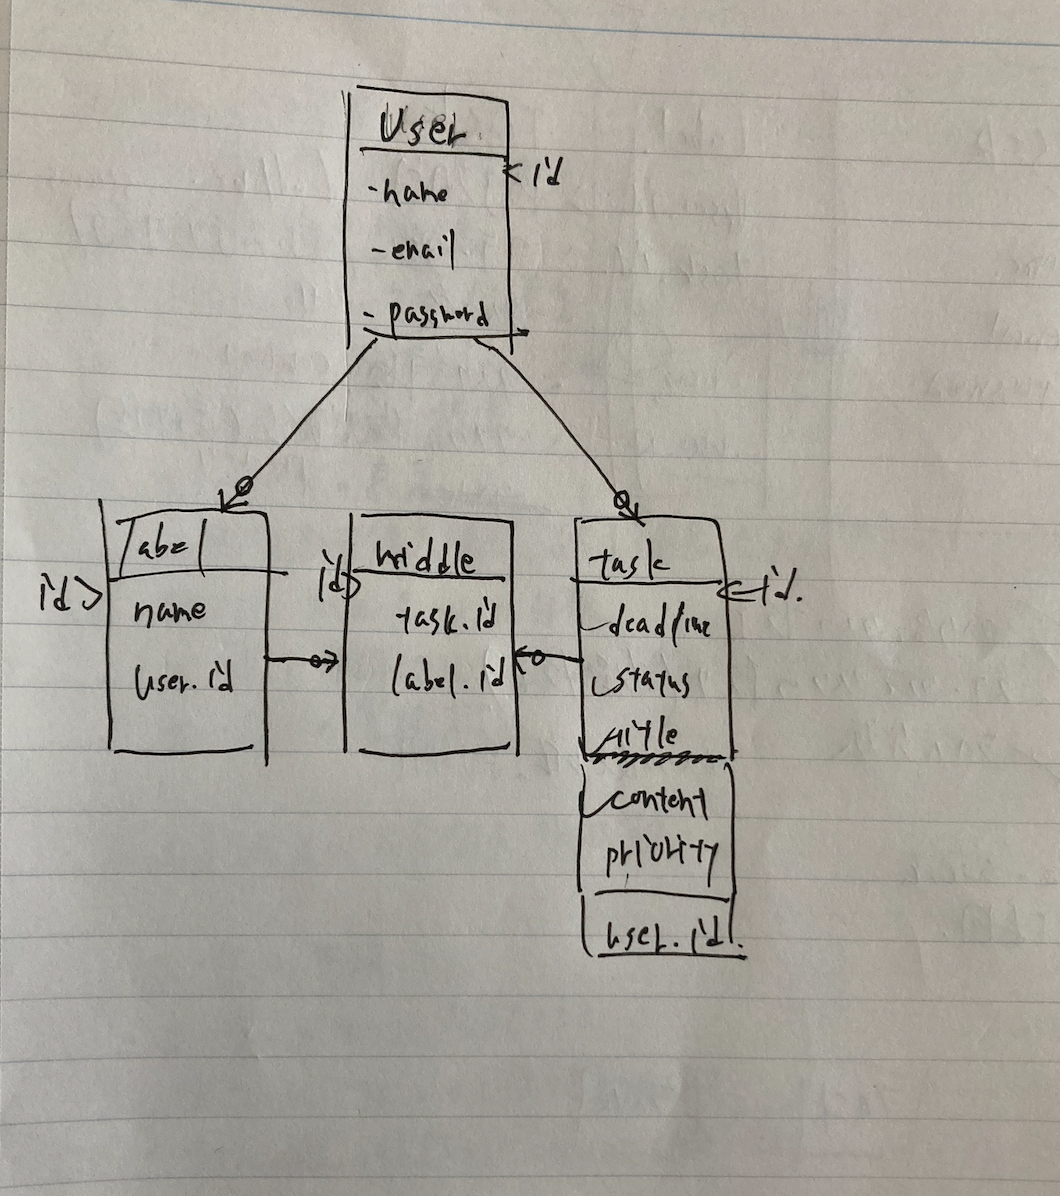 User
id
-name
-email
- password
label
id
name
user.id
middle
id
task.id
label.id
task
id.
deadline
status
title
content
priority
user.id.